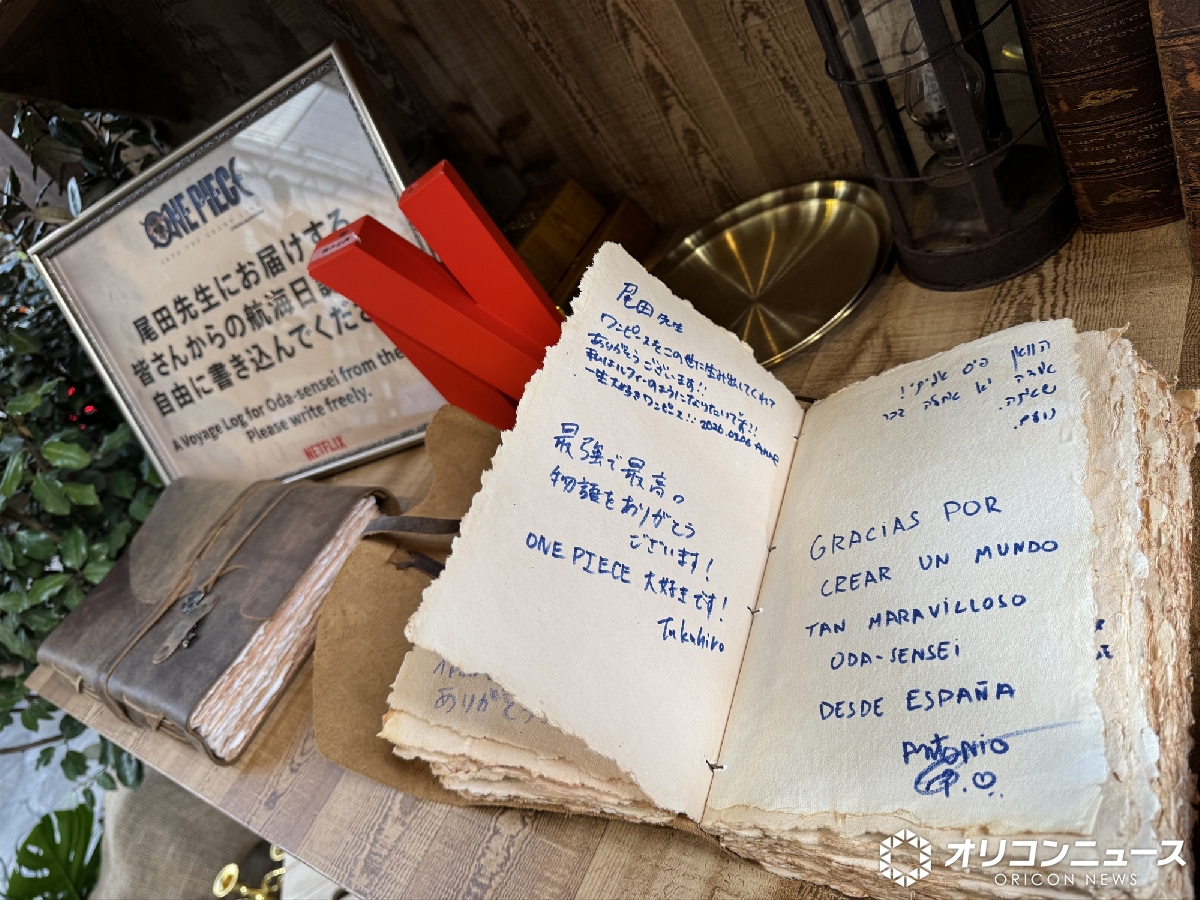 ONE PIECE
尾田先生にお届けする
皆さんからの航海日
自由に書き込んでくださ
A Voyage Log for Oda-sensei from the
Please write freely.
NETFLIX
尾田先生
ワンピースをこの世に生み出してくれて
ありがとうございます!!
私はルフィーのようになりたいです!!
一生大好きワンピース!! 2026.02.06
最強で最高の
物語をありがとう
ございます!
ONE PIECE 大好きです!
Takahiro
ありがとう
GRACIAS POR
CREAR UN MUNDO
TAN MARAVILLOSO
ODA-SENSEI
DESDE ESPAÑA
Antonio
オリコンニュース
ORICON NEWS